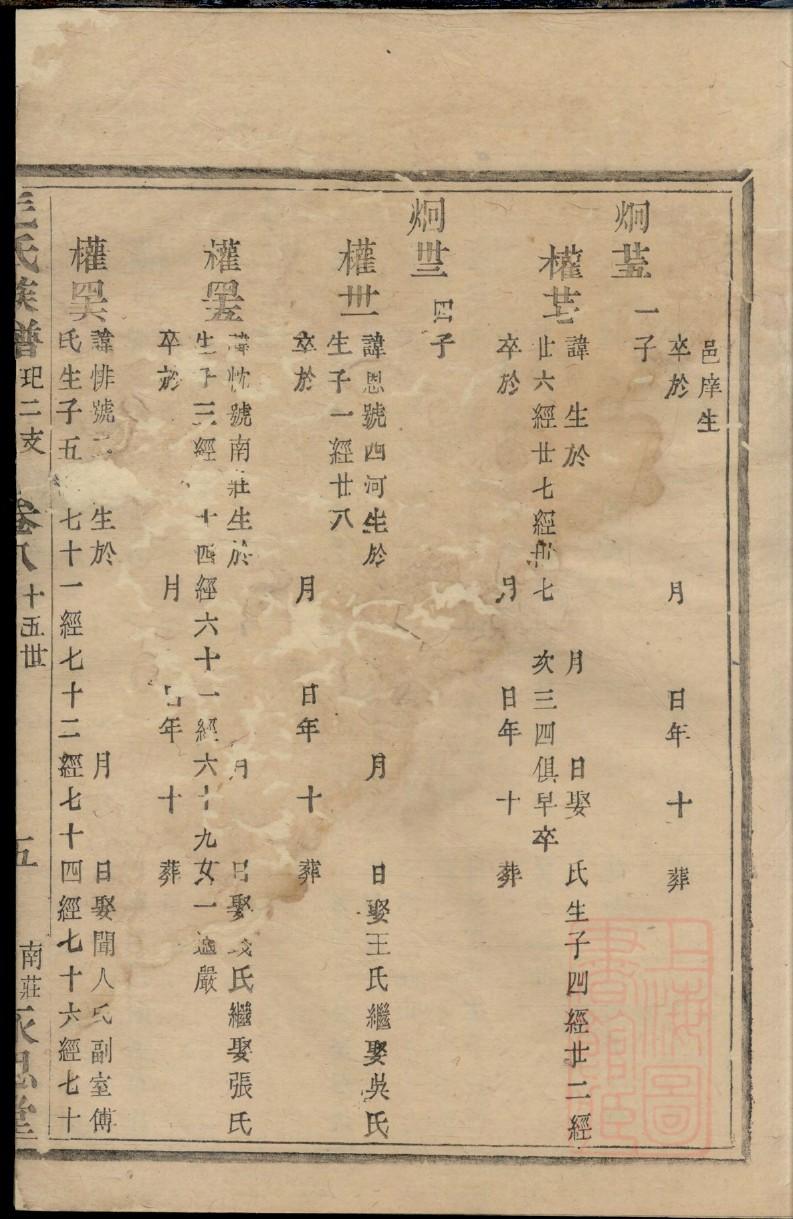 邑庠生
卒於 月 日年 十 葬
炯茥 一子
諱 生於 月 日娶 氏生子四經廿二經
權 廿六經廿七經卅七 次三四俱早卒
卒於 月 日年 十 葬
炯 四子
諱恩號西河生於 月 日娶王氏繼娶吳氏
權卅一 生子一經廿八
卒於 月 日年 十 葬
諱忱號南莊生於 月 日娶 氏繼娶張氏
權 生子三經 十四經六十一經六十九女一適嚴
卒於 月 日年 十 葬
諱悱號 生於 月 日娶聞人氏副室傅
權 氏生子五 七十一經七十二經七十四經七十六經七十
毛氏族譜 玘二支 卷八 十五世 五 南莊永思堂
上海圖書館藏